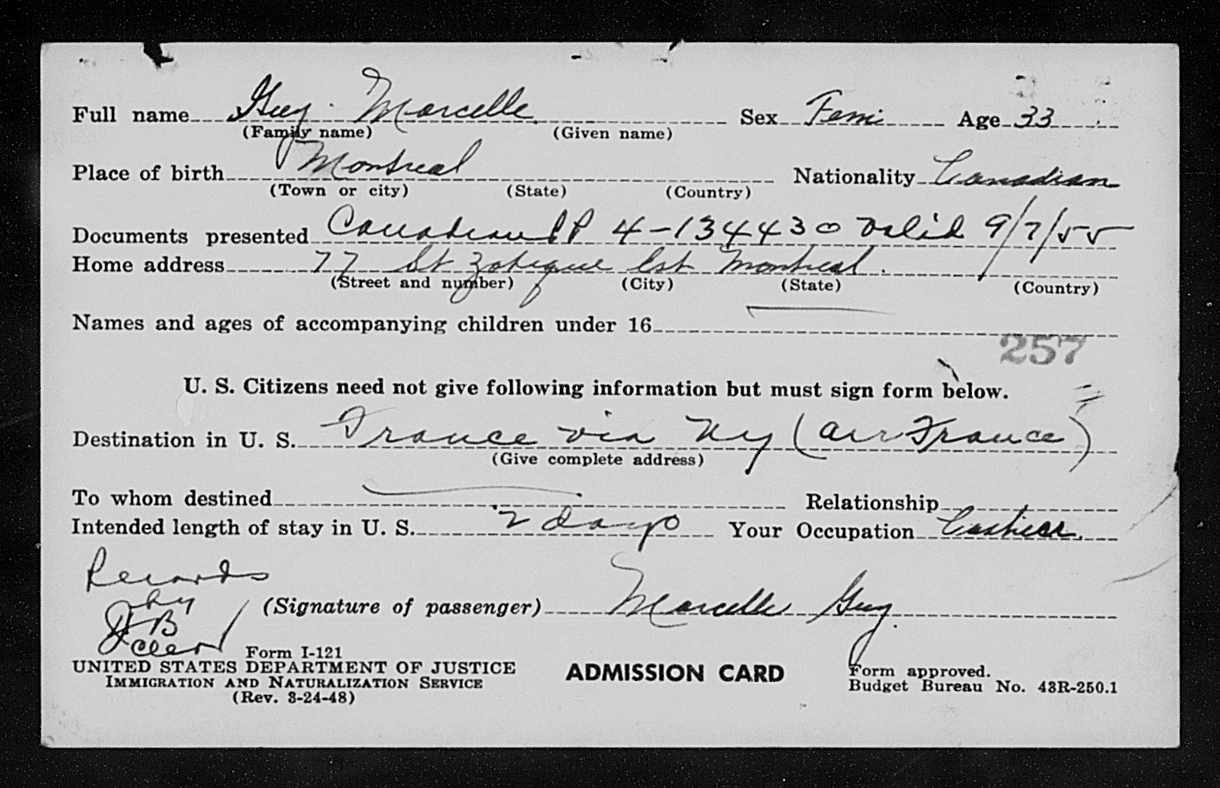 Full name Guy. Marcelle Sex Fem. Age 33
(Family name) (Given name)
Place of birth Montreal Nationality Canadian
(Town or city) (State) (Country)
Documents presented Canadian PP 4-134430 Valid 9/7/55
Home address 77 St Zotique Est Montreal.
(Street and number) (City) (State) (Country)
Names and ages of accompanying children under 16
257
U. S. Citizens need not give following information but must sign form below.
Destination in U. S. France via Ny (Air France)
(Give complete address)
To whom destined Relationship
Intended length of stay in U. S. 2 days Your Occupation Cashier.
Records
by
(Signature of passenger) Marcelle Guy
Form I-121
UNITED STATES DEPARTMENT OF JUSTICE
IMMIGRATION AND NATURALIZATION SERVICE
(Rev. 3-24-48)
ADMISSION CARD
Form approved.
Budget Bureau No. 43R-250.1